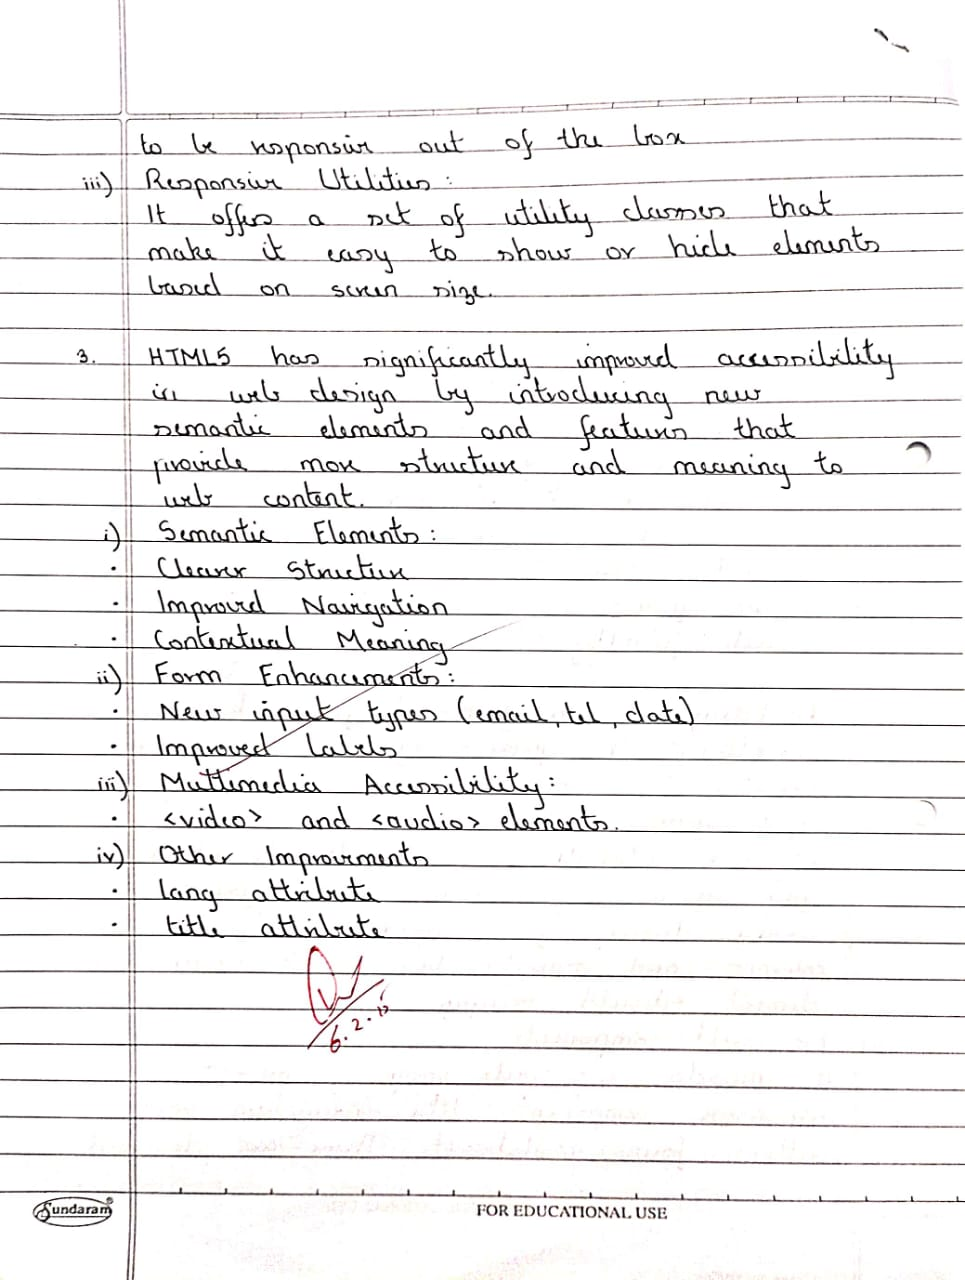 to be responsive out of the box
iii) Responsive Utilities:
It offers a set of utility classes that
make it easy to show or hide elements
based on screen size.
3. HTML5 has significantly improved accessibility
in web design by introducing new
semantic elements and features that
provide more structure and meaning to
web content.
i) Semantic Elements:
• Clearer Structure
• Improved Navigation
• Contextual Meaning
ii) Form Enhancements:
• New input types (email, tel, date)
• Improved labels
iii) Multimedia Accessibility:
• <video> and <audio> elements.
iv) Other Improvements
• lang attribute
• title attribute
6.2.
Sundaram®
FOR EDUCATIONAL USE